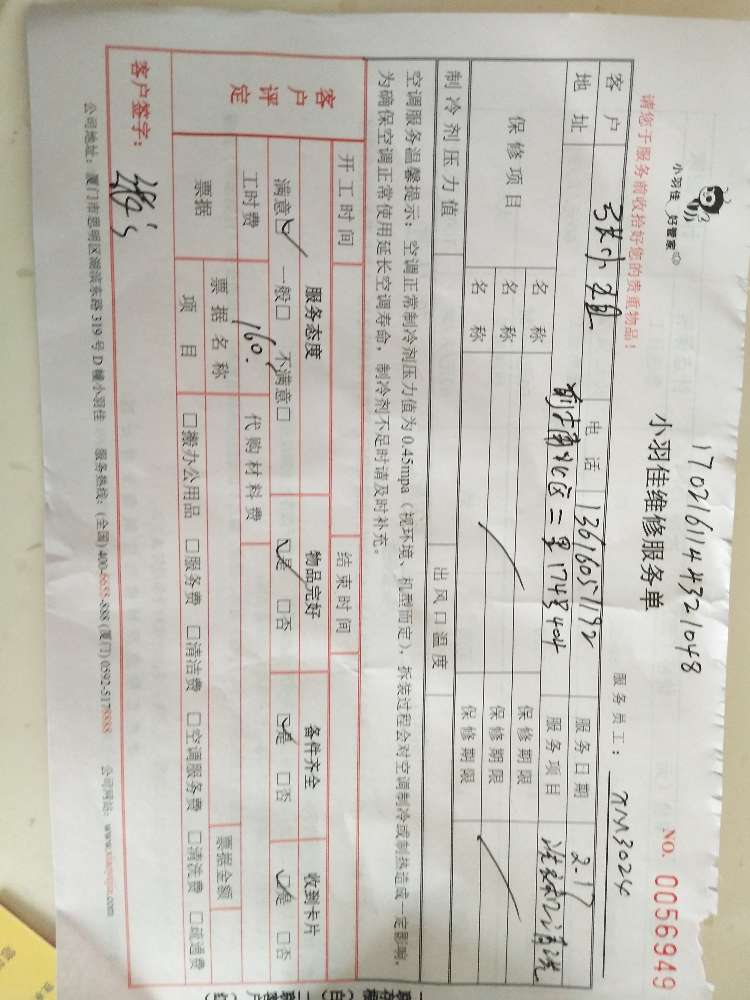 1702161144321048
小羽佳 好管家
小羽佳维修服务单
NO. 0056949
请您于服务前收拾好您的贵重物品!
服务员工: XM3024
客户 电话 13616051192 服务日期 2-17
地址 前埔北区二里174号404 服务项目 洗衣机清洗
保修项目 名称 保修期限
名称 保修期限
名称 保修期限
制冷剂压力值 出风口温度
空调服务温馨提示:空调正常制冷剂压力值为0.45mpa(视环境、机型而定),拆装过程会对空调制冷或制热造成一定影响,
为确保空调正常使用延长空调寿命,制冷剂不足时请及时补充。
开工时间 结束时间
客户评定 服务态度 物品完好 备件齐全 收到卡片
满意☑ 一般□ 不满意□ ☑是 □否 ☑是 □否 ☑是 □否
工时费 160. 代购材料费
票据 票据名称 票据金额
项目 □搬办公用品 □服务费 □清洁费 □空调服务费 □清洗费 □疏通费
客户签字:
公司地址:厦门市思明区湖滨东路319号D幢小羽佳 服务热线:(全国)400-6655-888 (厦门)0592-5178888 公司网站: